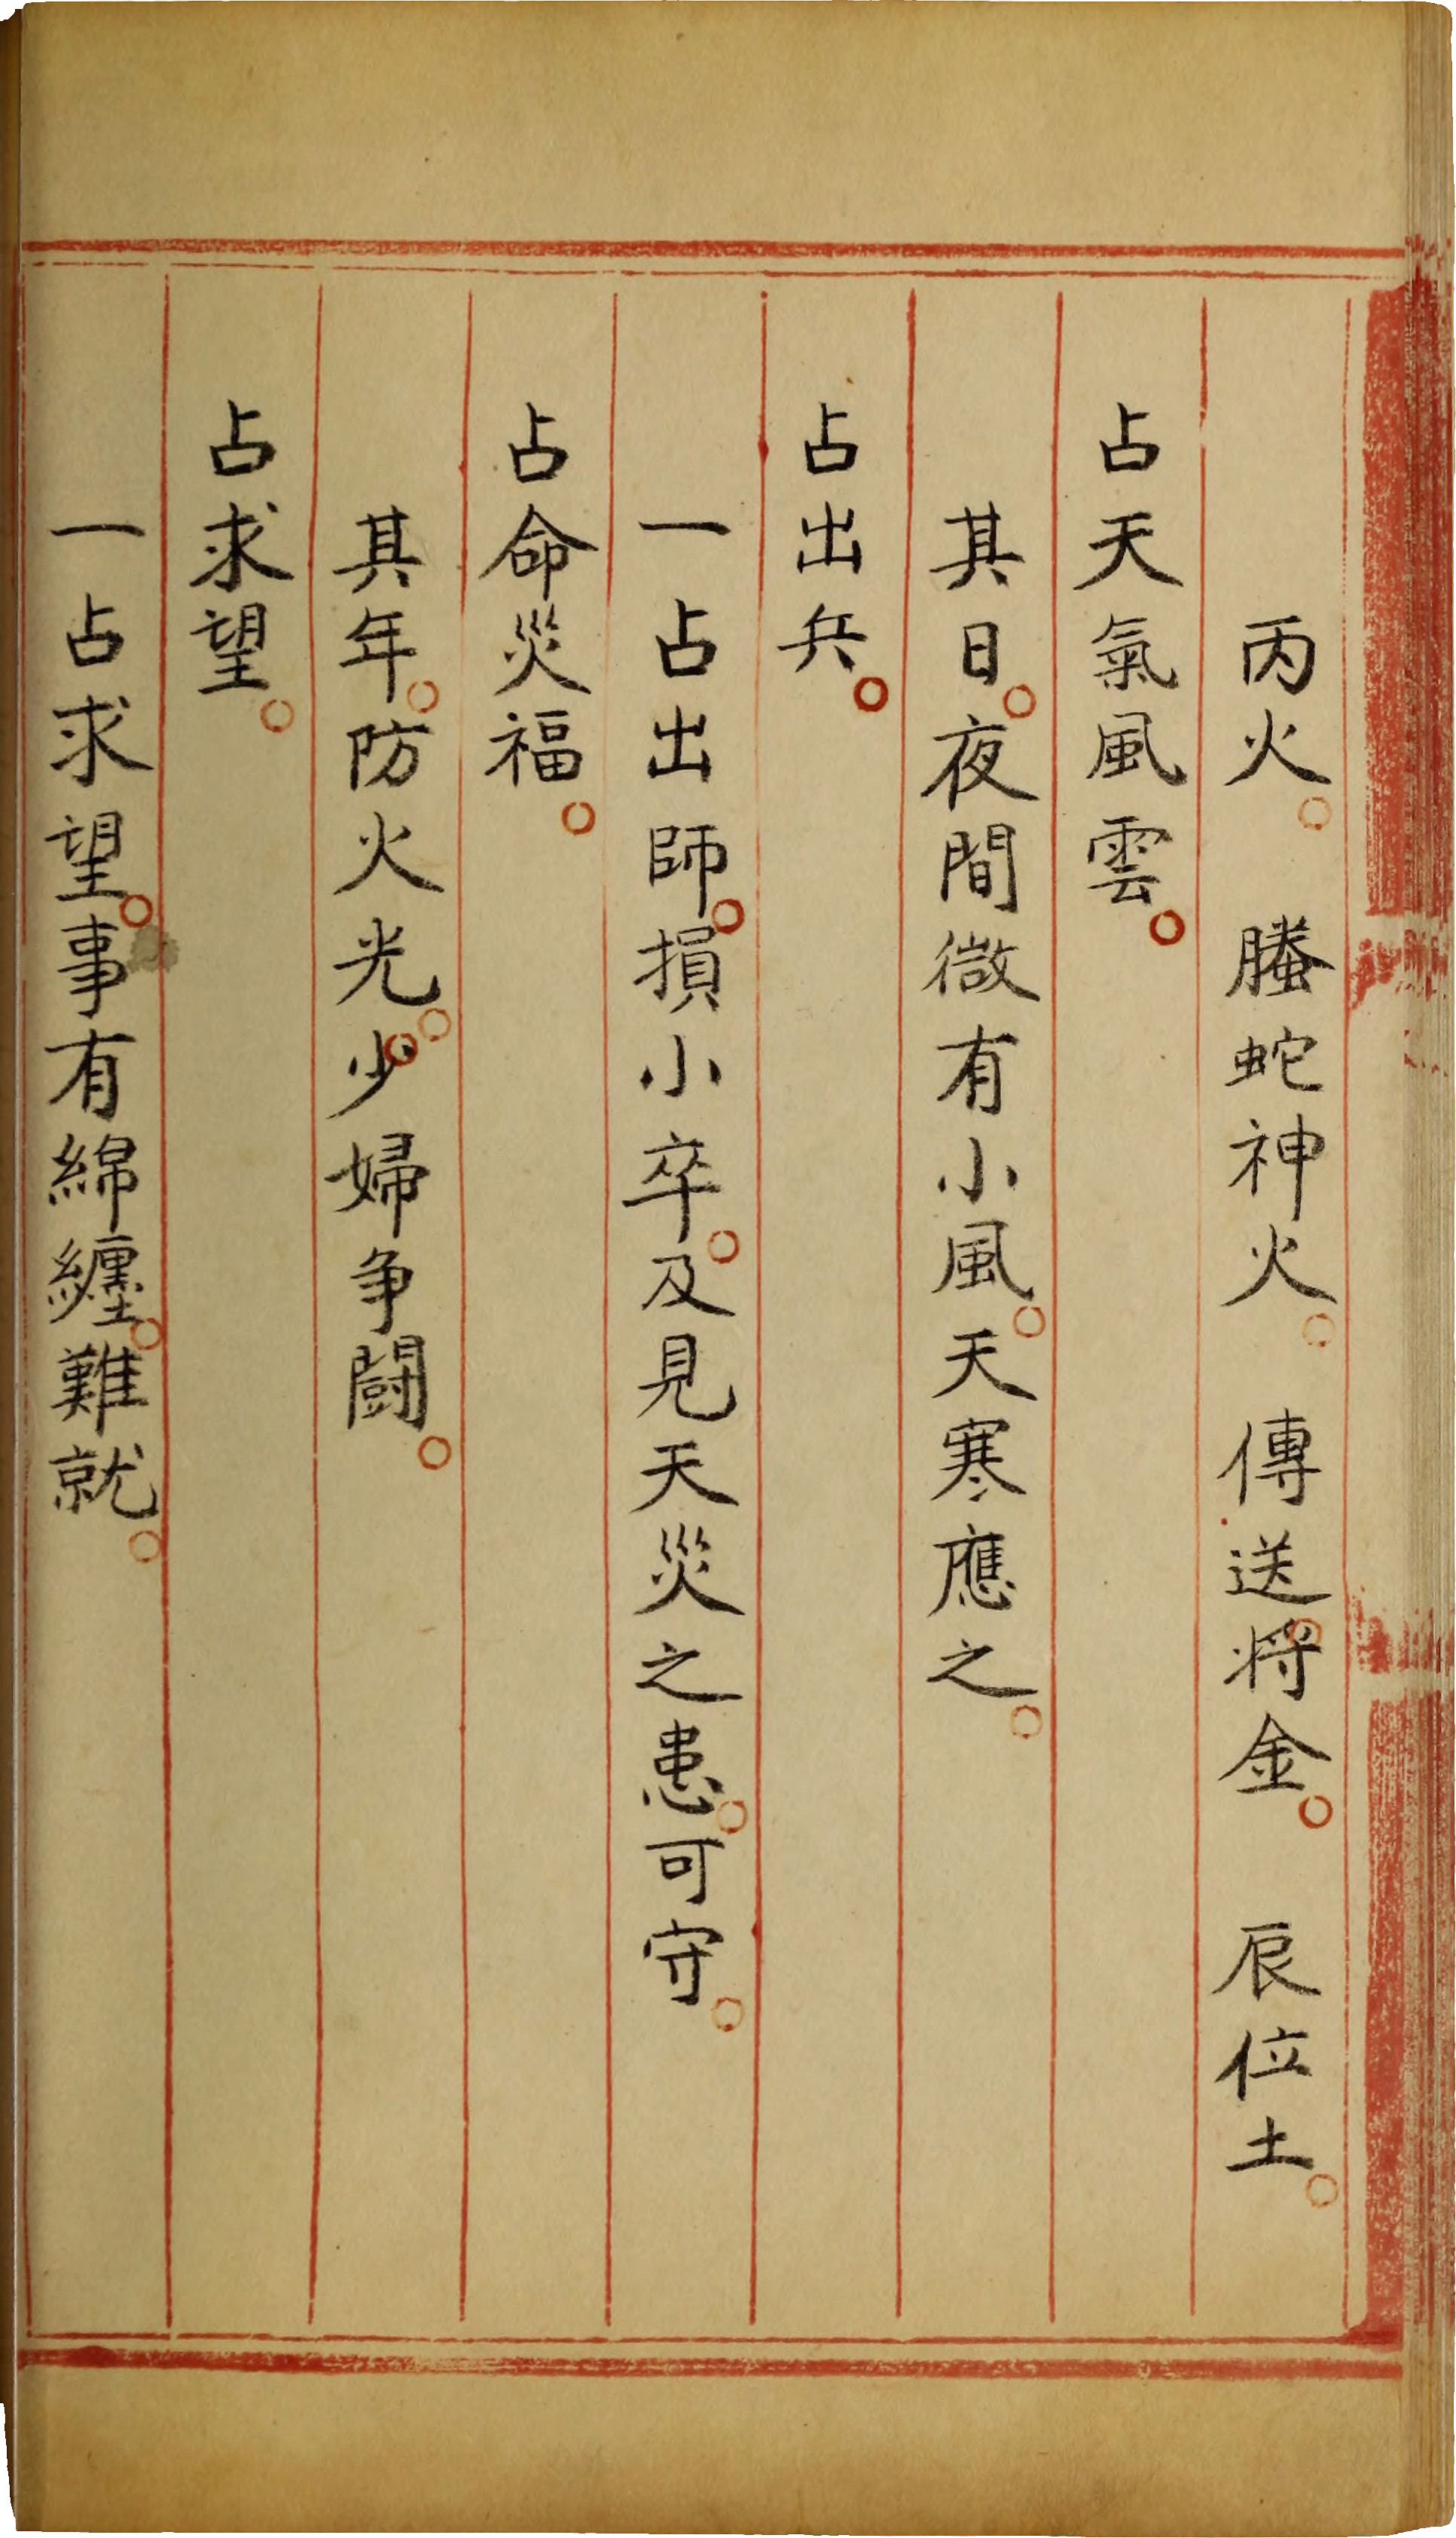 丙火。　螣蛇神火。　傳送將金。　辰位土。
占天氣風雲。
其日。夜間微有小風。天寒應之。
占出兵。
一占出師。損小卒。及見天災之患。可守。
占命災福。
其年。防火光。少婦争鬪。
占求望。
一占求望。事有綿纏。難就。